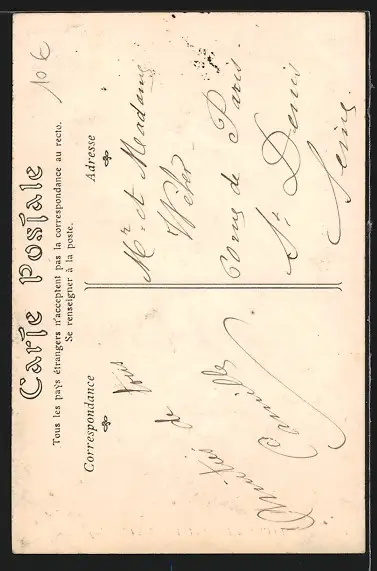 Carte Postale
Tous les pays étrangers n'acceptent pas la correspondance au recto.
Se renseigner à la poste.
Correspondance
Amitiés de tous
Camille
Adresse
Mr et Madame
Weber
60 rue de Paris.
St Denis
Seine.
10 €